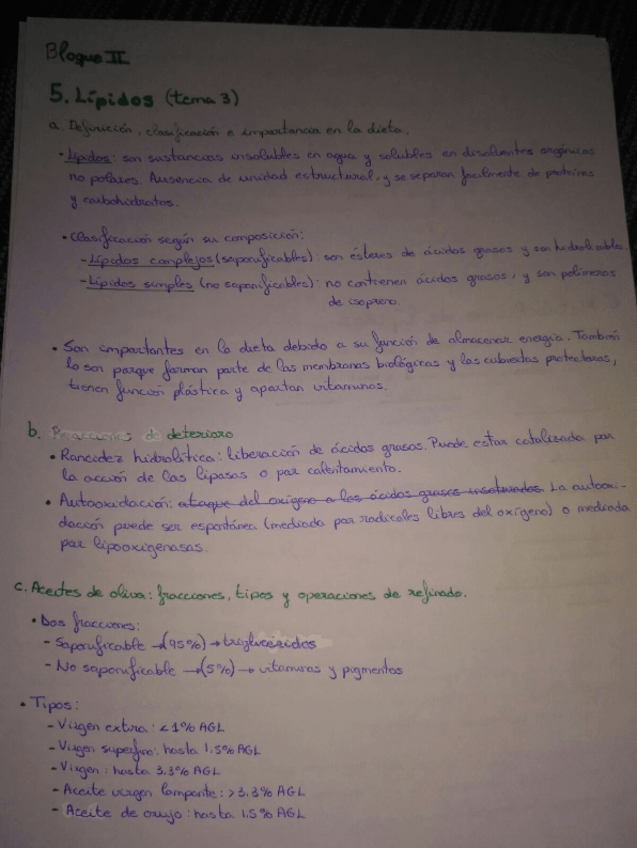 Bloque II
5. Lípidos (tema 3)
a. Definición, clasificación e importancia en la dieta.
• Lípidos: son sustancias insolubles en agua y solubles en disolventes orgánicos
no polares. Ausencia de unidad estructural, y se separan facilmente de proteínas
y carbohidratos.
• Clasificación según su composición:
- Lípidos complejos (saponificables): son ésteres de ácidos grasos y son hidrolizables.
- Lípidos simples (no saponificables): no contienen ácidos grasos, y son polímeros
de isopreno.
• Son importantes en la dieta debido a su función de almacenar energía. También
lo son porque forman parte de las membranas biológicas y las cubiertas protectoras,
tienen función plástica y aportan vitaminas.
b. Reacciones de deterioro
• Rancidez hidrolítica: liberación de ácidos grasos. Puede estar catalizada por
la acción de las lipasas o por calentamiento.
• Autooxidación: ataque del oxígeno a los ácidos grasos insaturados. La autooxi-
dación puede ser espontánea (mediada por radicales libres del oxígeno) o mediada
por lipooxigenasas.
c. Aceites de oliva: fracciones, tipos y operaciones de refinado.
• Dos fracciones:
- Saponificable → (95%) → triglicéridos
- No saponificable → (5%) → vitaminas y pigmentos
• Tipos:
- Virgen extra: <1% AGL
- Virgen superfino: hasta 1.5% AGL
- Virgen: hasta 3.3% AGL
- Aceite virgen lampante: >3.3% AGL
- Aceite de orujo: hasta 1.5% AGL